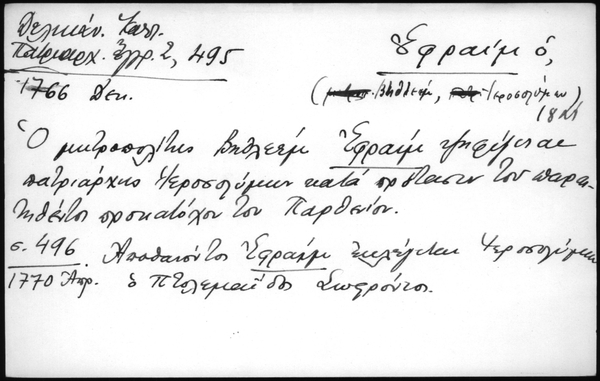 Δελικάν. Καλλ.
Πατριαρχ. Ἔγγρ. 2, 495
Ἐφραὶμ ὁ,
1766 Δεκ.
(Βηθλεέμ, Ἱεροσολύμων)
18 αἰ
Ὁ μητροπολίτης Βηθλεέμ Ἐφραὶμ ψηφίζεται
πατριάρχης Ἱεροσολύμων κατὰ πρότασιν τοῦ παραι-
τηθέντος προκατόχου του Παρθενίου.
σ. 496
1770 Ἀπρ.
Ἀποθανόντος Ἐφραὶμ ἐκλέγεται Ἱεροσολύμων
ὁ Πτολεμαΐδος Σωφρόνιος.